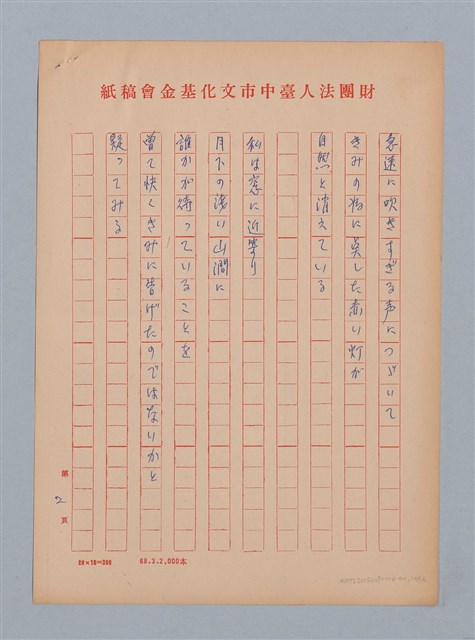 財團法人臺中市文化基金會稿紙
急速に吹きすぎる声につづいて
きみの為に点した赤い灯が
自然と消えている
私は窓に近寄り
月下の薄い山澗に
誰かが待っていることを
曽て快くきみに告げたのではないかと
疑ってみる
第2頁
20×10=200
68.3.2,000本